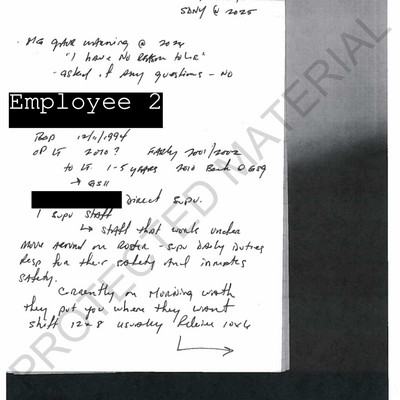 SDNY @ 2025
• MG gave warning @ 2024
"I have no reason to lie"
- asked if any questions - NO
Employee 2
BOP 12/11/1994
OP LT 2010? Early 2001/2002
to LT. 1-5 years 2010 Back @ GS9
→ GS11
Direct Supv.
1 Supv Staff
↳ Staff that works under
move around on Roster - Supv Daily Duties
Resp for their safety and inmates
safety.
Currently on Morning watch
they put you where they want
shift 12x8 usually Relieve 10x6
PROTECTED MATERIAL